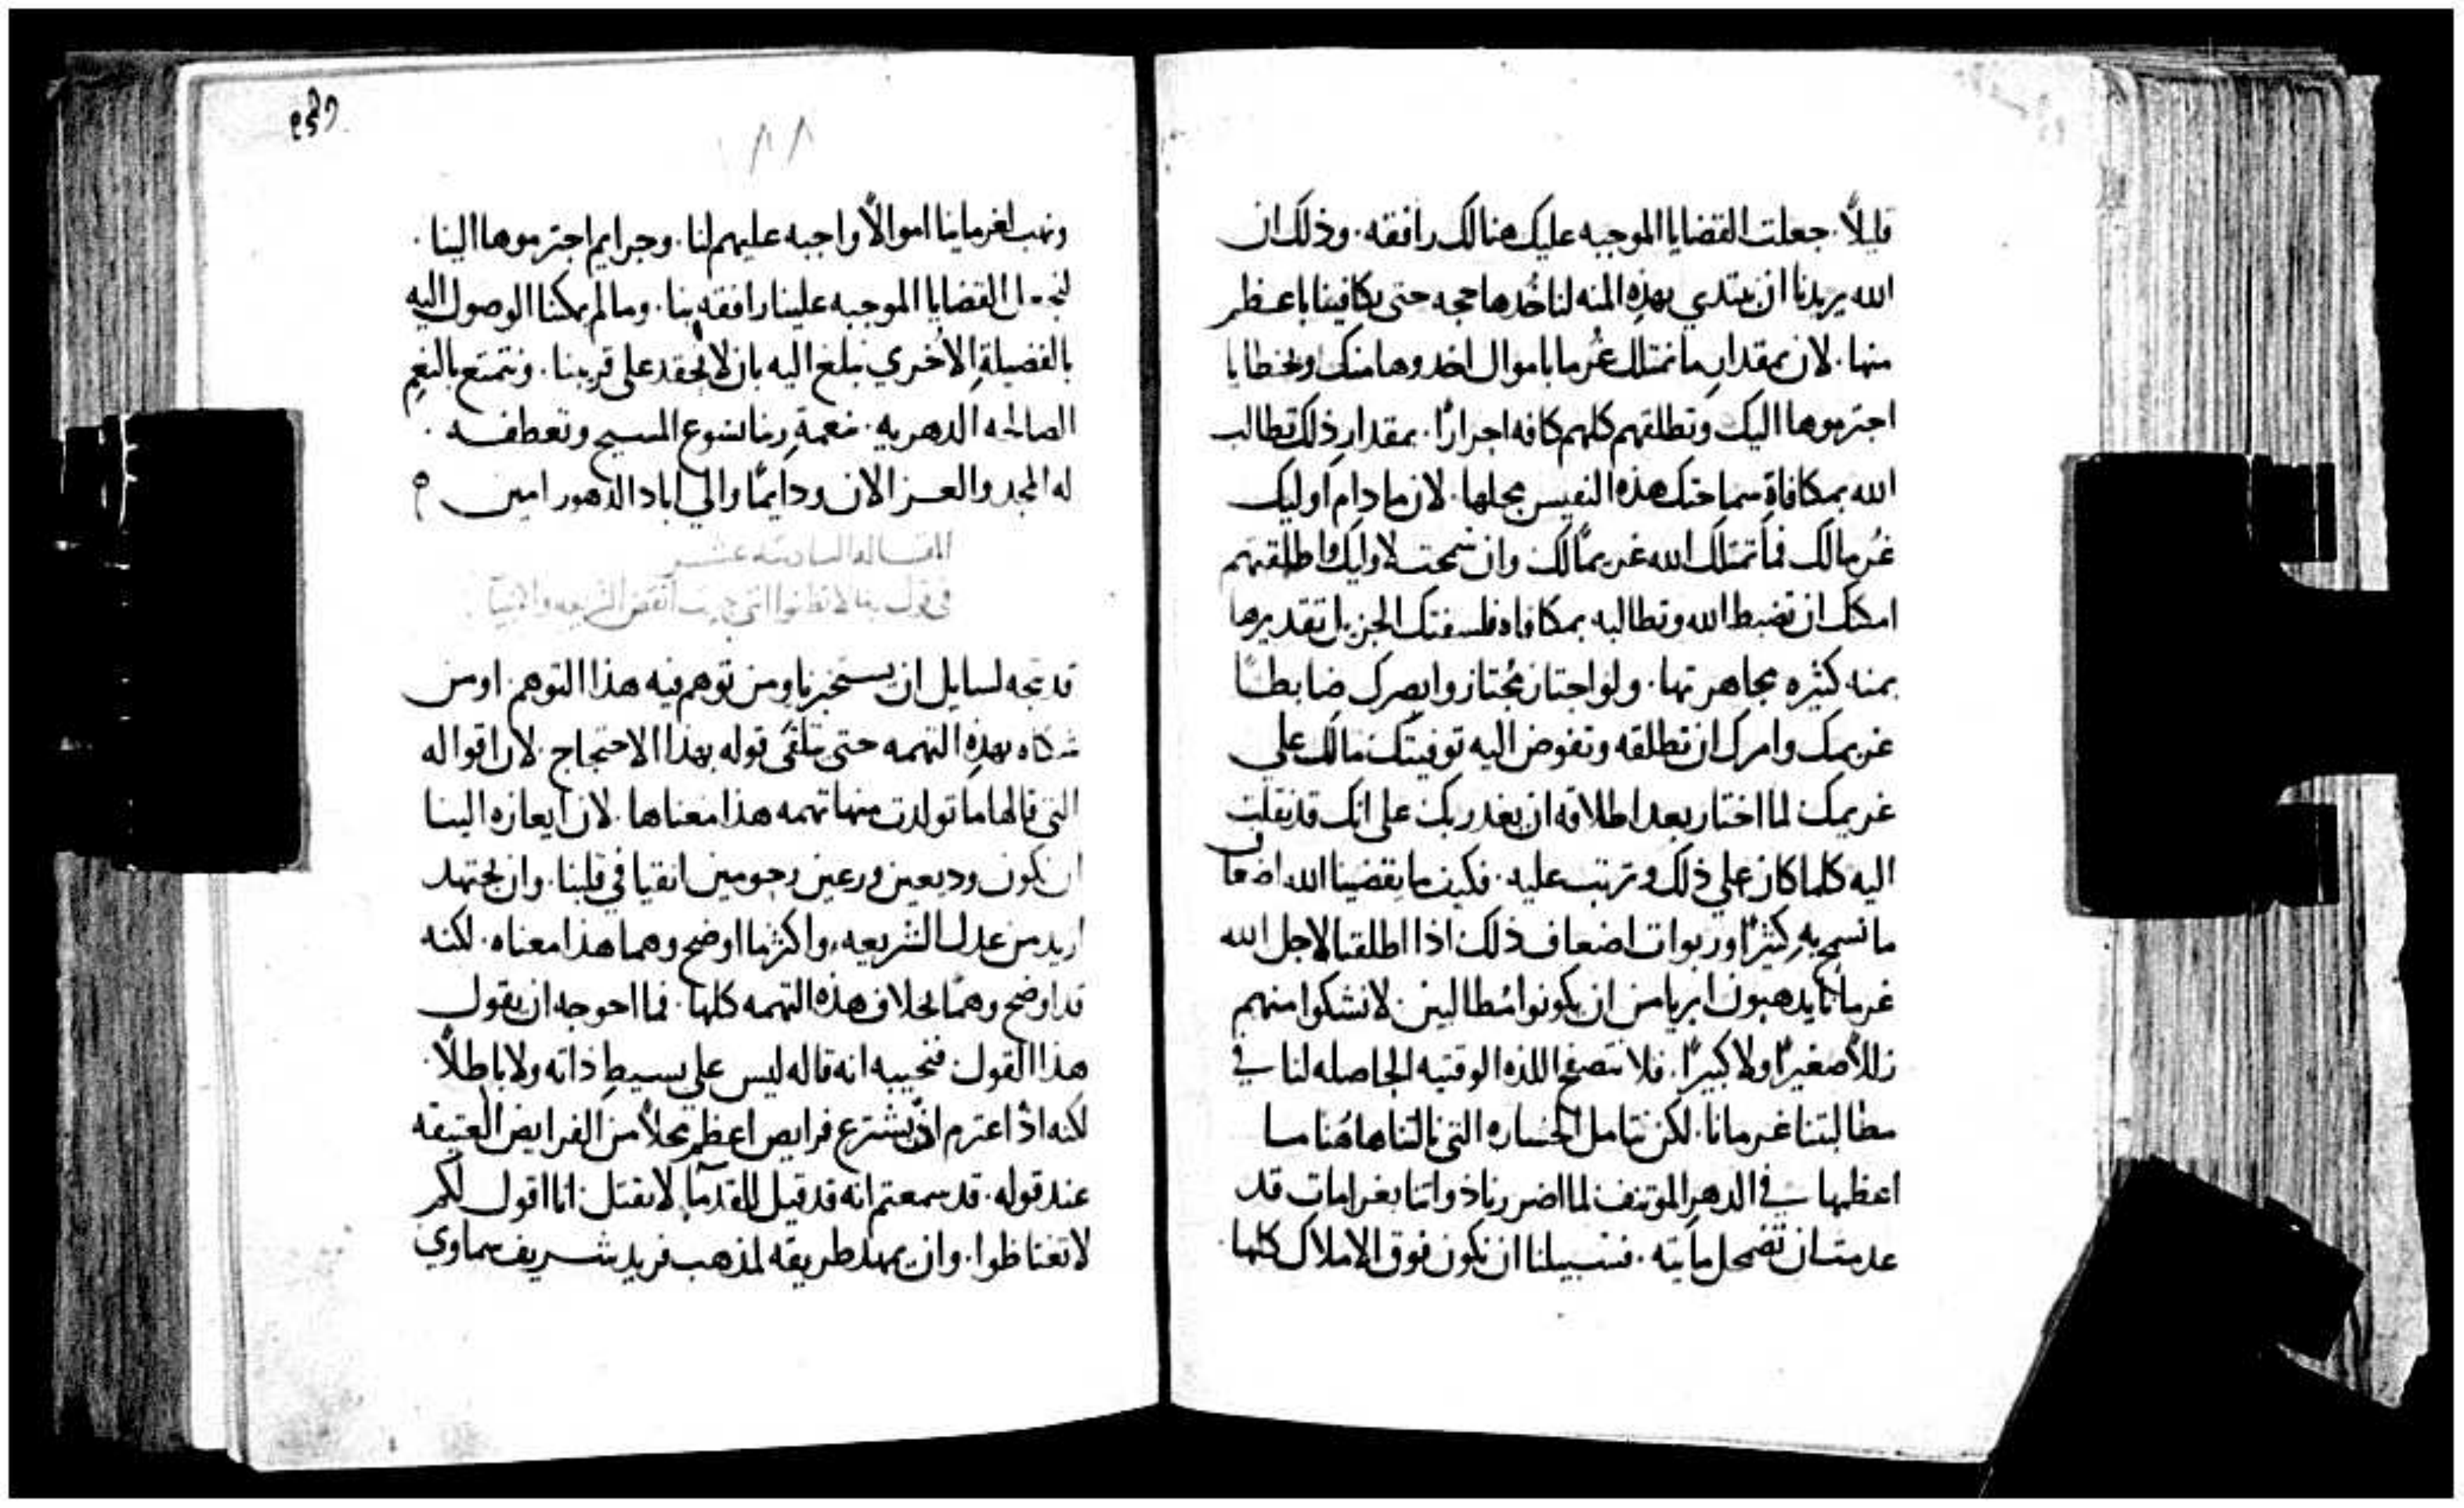 قليلاً. جعلت القضايا الموجبه عليك هنالك رافقه. وذلك ان
الله يريدنا ان نبتدي بهذه المنه لناخدها حجه حتى يكافينا باعظم
منها. لان بمقدار ما تمتلك غرما باموال اخدوها منك وبخطايا
اجترموها اليك وتطلقهم كلهم كافه احرارًا. بمقدار ذلك تطالب
الله بمكافاة سماحتك هذه النفيس محلها. لان ما دام اوليك
غرما لك فما تمتلك الله غريمًا لك وان سمحت لاوليك واطلقتهم
امكنك ان تضبط الله وتطالبه بمكافاه فلسفتك الجزيل تقديرها
بمنه كثيره مجاهرتها. ولو اجتاز مجتاز وابصرك ضابطًا
غريمك وامرك ان تطلقه وتفوض اليه توفيتك مالك علي
غريمك لما اختار بعد اطلاقه ان يغدر بك على انك قد نقلت
اليه كلما كان علي ذلك وترتب عليه. فكيف ما يقضينا الله اضعاف
ما نسمح به كثيرًا وربوات اضعاف ذلك اذا اطلقنا لاجل الله
غرمانا يدهبون ابريا من ان يكونوا مطالبين لا نشكوا منهم
زللاً صغيرًا ولا كبيرًا. فلا نتصفح اللذه الوقتيه الحاصله لنا في
مطالبتنا غرمانا. لكن نتامل الخساره التي نالتنا هاهنا ما
اعظمها في الدهر الموتنف لما اضررنا ذواتنا بغرامات قد
عدمت ان تضمحل مايته. فسبيلنا ان نكون فوق الاملاك كلها.
٨٨
ونهب لغرماينا اموالاً واجبه عليهم لنا. وجرايم اجترموها الينا.
لنجعل القضايا الموجبه علينا رافقه بنا. وما لم يمكنا الوصول اليه
بالفضيلة الاخري نبلغ اليه بان لا نحقد على قريبنا. ونتمتع بالنعم
الصالحه الدهريه. بنعمة ربنا يسوع المسيح وتعطفه.
له المجد والعز الان ودايمًا والي اباد الدهور امين
المقاله السادسه عشر
في قوله لا تظنوا انني جيت انقض الشريعه والانبيا
قد يتجه لسايل ان يستخبرنا ومن توهم فيه هذا التوهم. او من
شكاه بهذه التهمه حتى يتلقى قوله بهذا الاحتجاج. لان اقواله
التي قالها ما تولدت منها تهمه هذا معناها. لان ايعازه الينا
ان نكون وديعين ورعين رحومين انقيا في قلبنا. وان نجتهد
ازيد من عدل الشريعه، واكثر ما اوضح وهما هذا معناه. لكنه
قد اوضح وهمًا بخلاف هذه التهمه كلها. فما احوجه ان يقول
هذا القول فنجيبه انه قاله ليس على بسيط ذاته ولا باطلاً.
لكنه اذ اعتزم ان يشترع فرايض اعظم محلاً من الفرايض العتيقه
عند قوله. قد سمعتم انه قد قيل للقدما لا تقتل انا اقول لكم
لا تغتاظوا. وان يمهد طريقه لمذهب فريد شريف سماوي